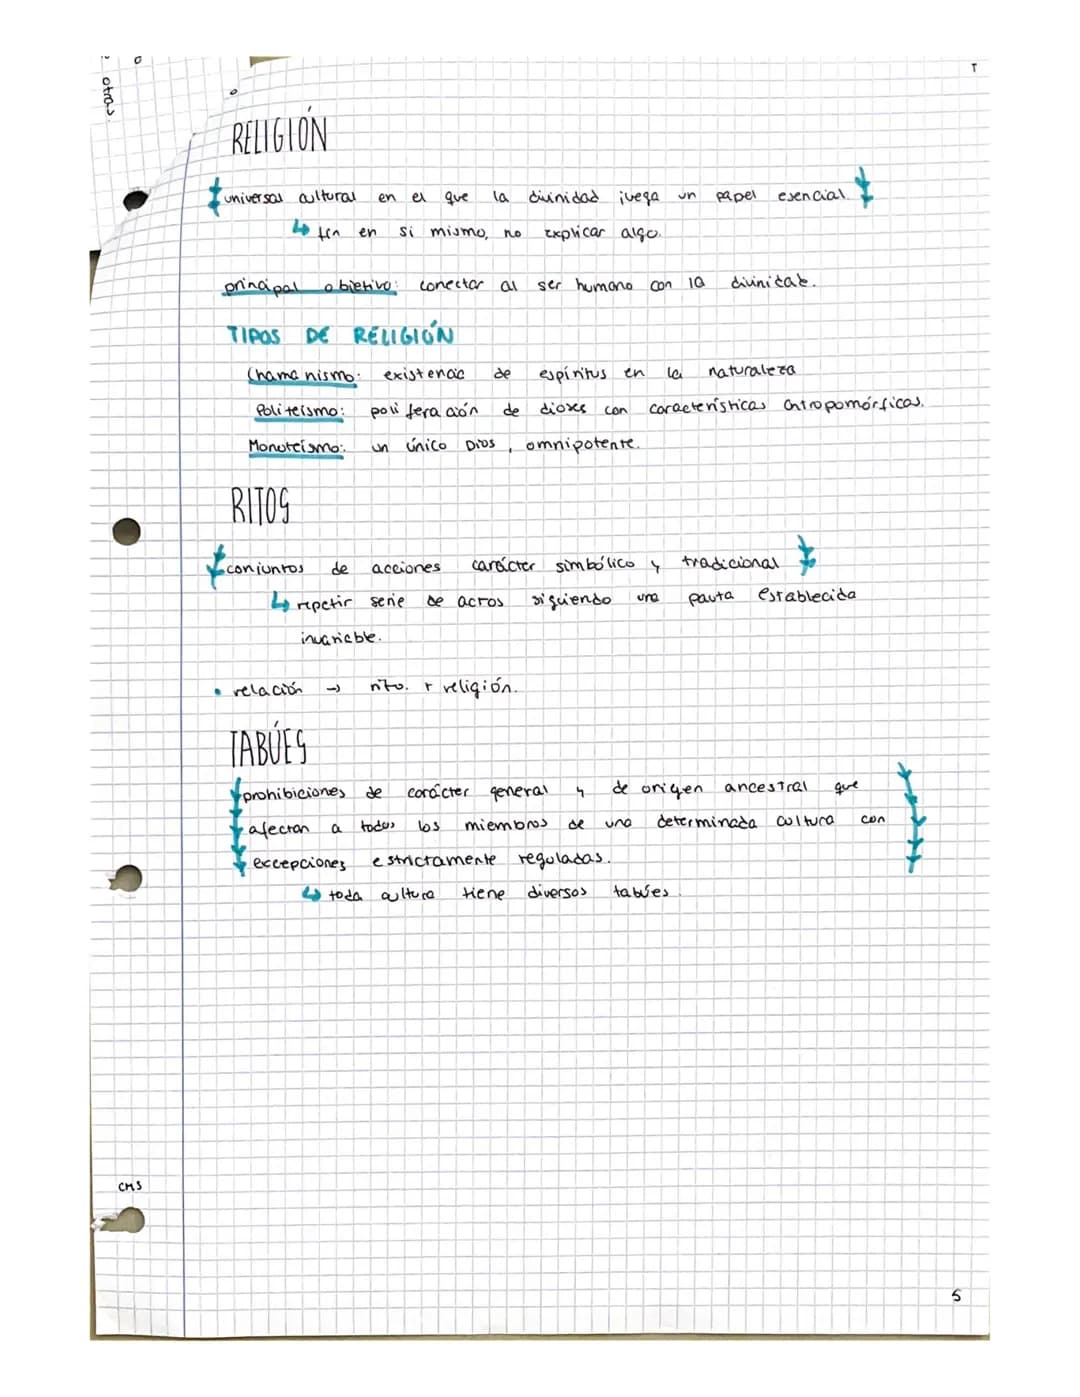 otras.
RELIGIÓN
universal cultural en el que la divinidad juega un papel esencial.
↳ fin en si mismo, no explicar algo.
principal objetivo: conectar al ser humano con la divinidad.
TIPOS DE RELIGIÓN
Chamanismo: existencia de espíritus en la naturaleza
Politeísmo: poliferación de dioses con características antropomórficas.
Monoteísmo: un único Dios, omnipotente.
RITOS
conjuntos de acciones carácter simbólico y tradicional
↳ repetir serie de actos siguiendo una pauta establecida
invariable.
• relación → rito. + religión.
TABÚES
prohibiciones de carácter general y de origen ancestral que
afectan a todos los miembros de una determinada cultura con
excepciones estrictamente reguladas.
↳ toda cultura tiene diversos tabúes.
CMS
5